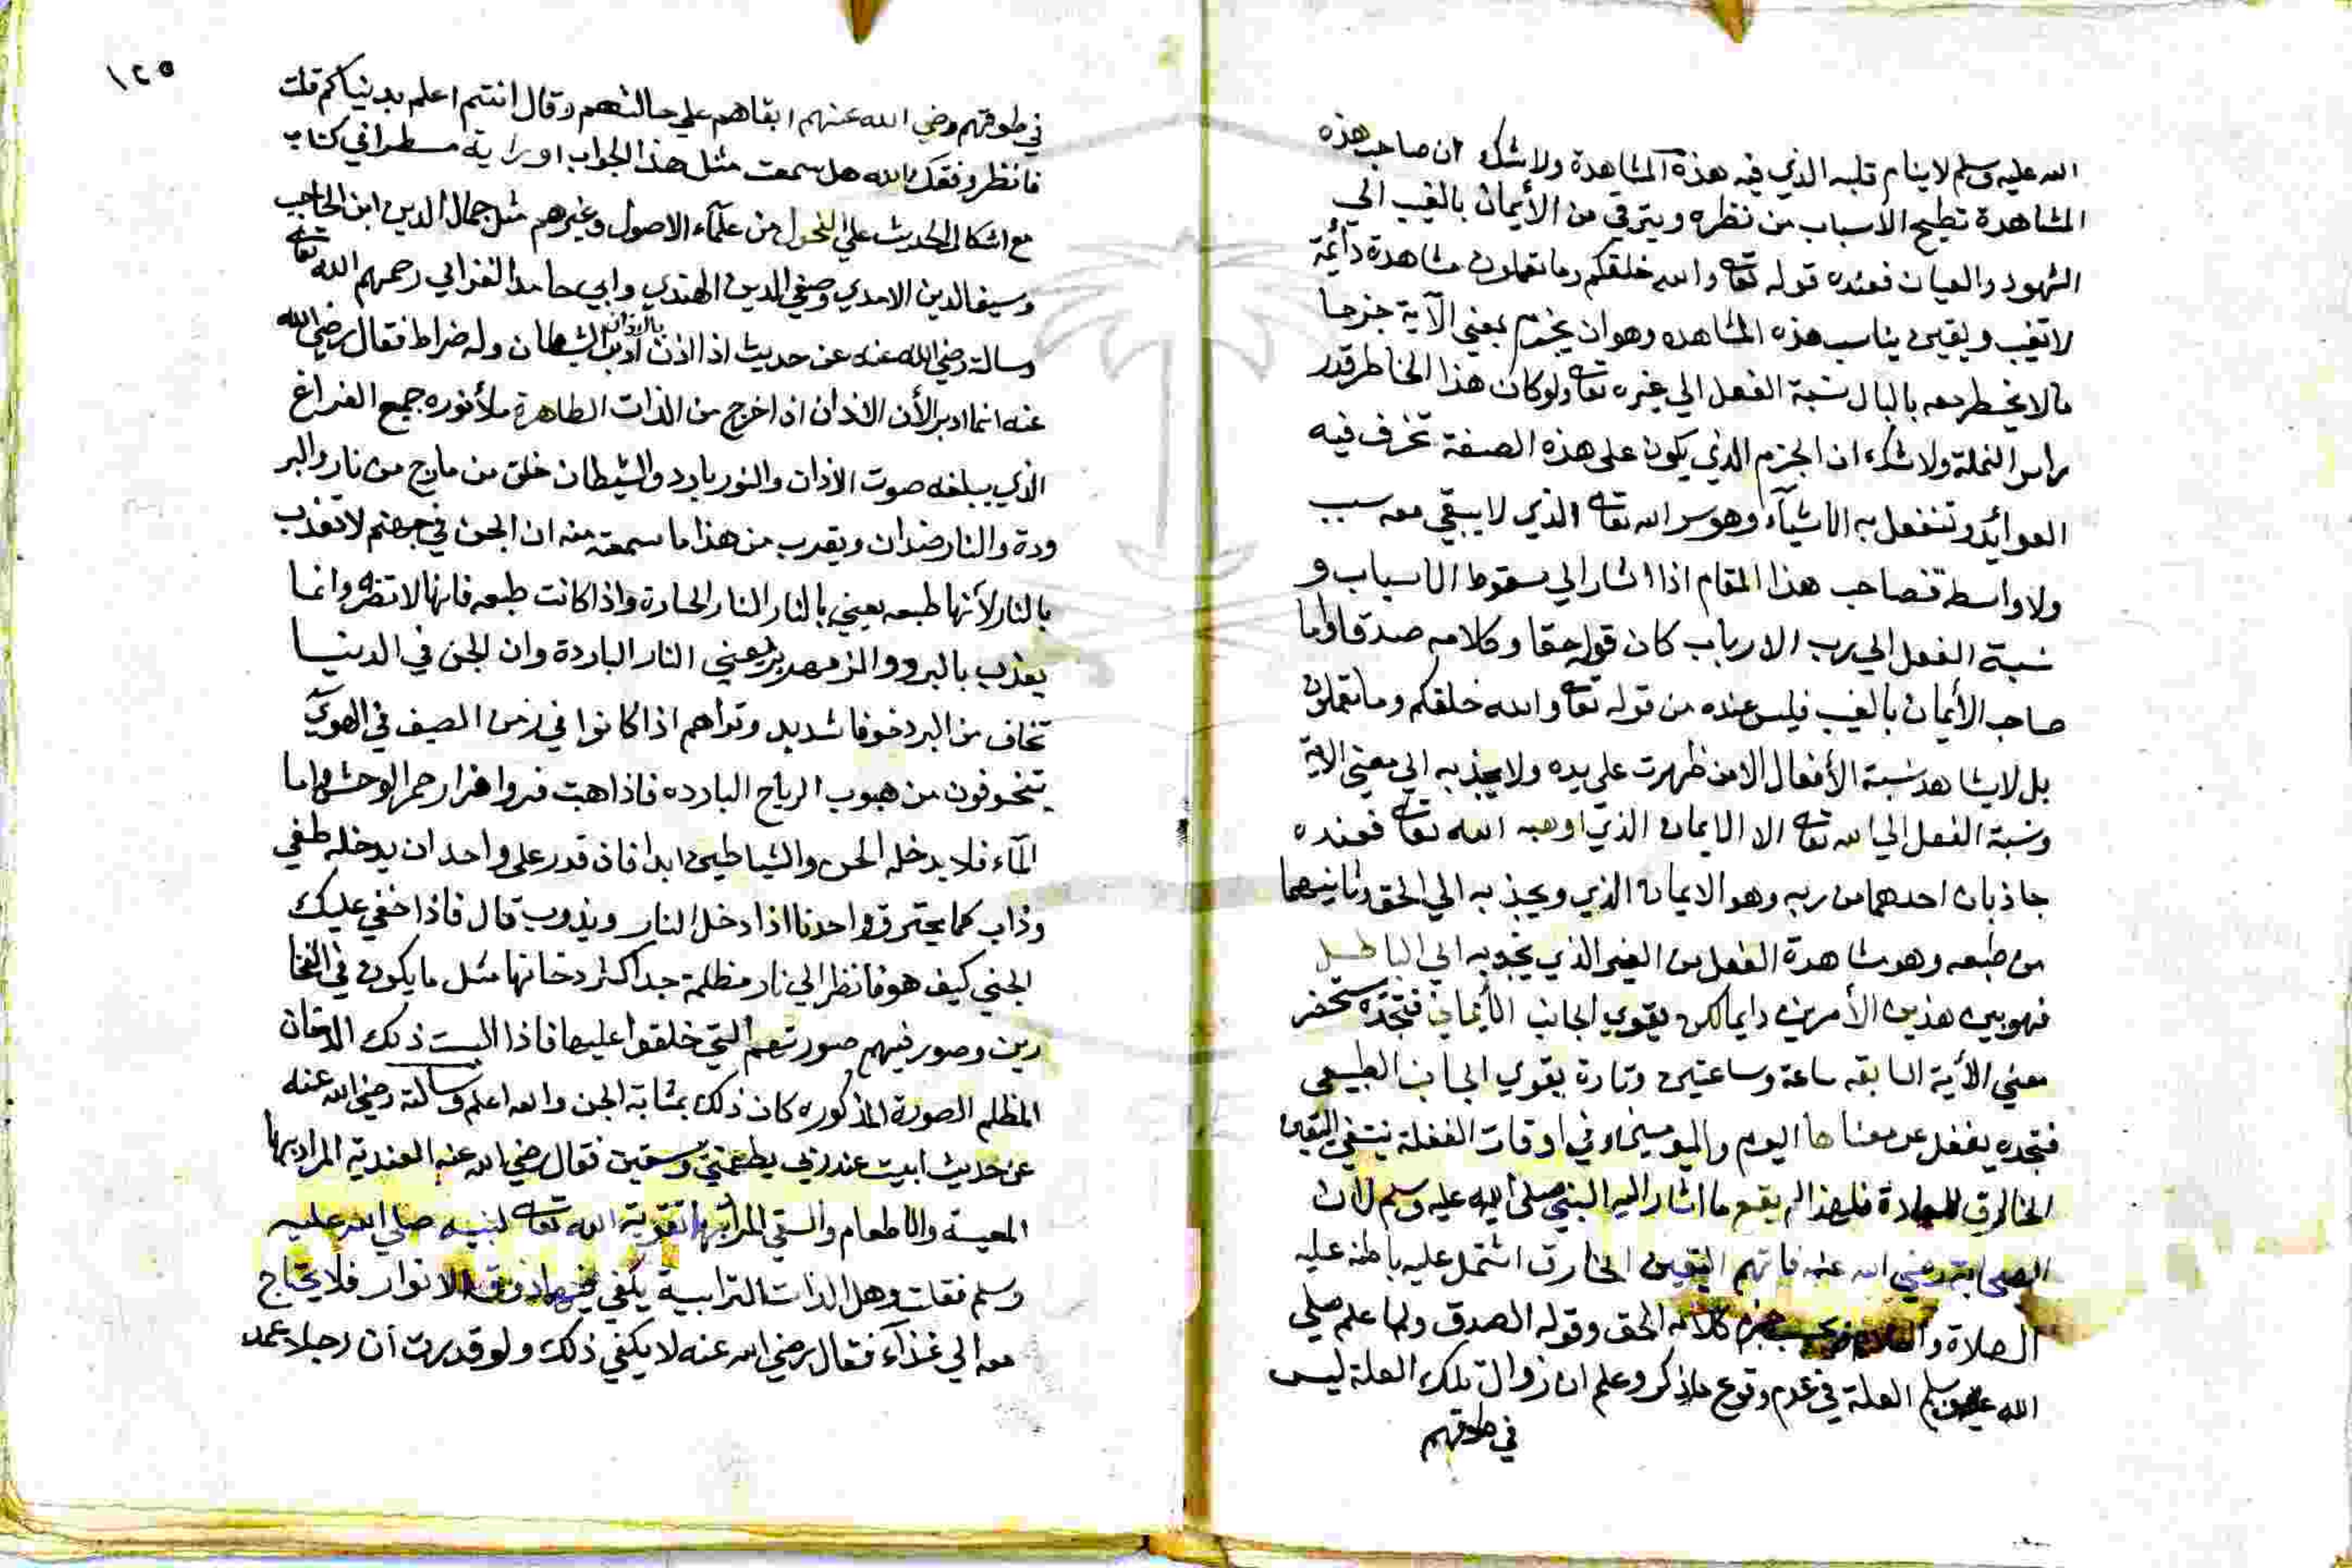 الله عليه وسلم لا ينام قلبه الذي فيه هذه المشاهدة ولا شك ان صاحب هذه
المشاهدة تطيح الاسباب من نظره ويترقي من الأيمان بالغيب الي
الشهود والعيان فعنده قوله تعا والله خلقكم وما تعملون مشاهدة دائمة
لا تغيب ويقين يناسب هذه المشاهده وهو ان يجزم بمعني الآية جزما
مالا يخطر معه بالبال نسبة الفعل الي غيره تعا ولو كان هذا الخاطر قدر
راس النملة ولا شك ان الجزم الذي يكون على هذه الصفة تخرق فيه
العوائد وتنفعل به الاشيآء وهو سر الله تعا الذي لا يبقي معه سبب
ولا واسطة فصاحب هذا المقام اذا اشار الي سقوط الاسباب و
نسبة الفعل الي رب الارباب كان قوله حقا وكلامه صدقا واما
صاحب الأيمان بالغيب فليس عنده من قوله تعا والله خلقكم وما تعملون
بل لا يشاهد نسبة الأفعال الا من ظهرت علي يده ولا يجذبه الي معني الاية
ونسبة الفعل الي الله تعا الا الايمان الذي اوهبه الله تعا فعنده
جاذبان احدهما من ربه وهو الايمان الذي ويجذبه الي الحق وثانيهما
من طبعه وهو مشاهدة الفعل من الغير الذي يجذبه الي الباطل
فهو بين هذين الأمرين دايما لكن يقوي الجانب الأيماني فتجده يستحضر
معني الأية السابقه ساعة وساعتين وتارة يقوي الجانب الطبيعي
فتجده يغفل عن معناها اليوم واليومين وفي اوقات الغفلة ينتفي اليقين
الخارق للعادة فلهذا لم يقع ما اشار اليه النبي صلى الله عليه وسلم لان
الصحابة رضي الله عنه فاتهم اليقين الخارق اشتمل عليه باطنه عليه
الصلاة و كلامه الحق وقوله الصدق ولما علم صلي
الله عليه وسلم العلة في عدم وقوع ما ذكر وعلم ان زوال تلك العلة ليس
في طوقهم
١٢٥
في طوقهم رضي الله عنهم ابقاهم علي حالتهم وقال انتم اعلم بدنياكم قلت
فانظر وفقك الله هل سمعت مثل هذا الجواب او رايته مسطرا في كتاب
مع اشكال الحديث علي الفحول من علمآء الاصول وغيرهم مثل جمال الدين ابن الحاجب
وسيف الدين الامدي وصفي الدين الهندي وابي حامد الغزالي رحمهم الله تعا
وسالته رضي الله عنه عن حديث اذا اذن بالاذان ادبر الشيطان وله ضراط فقال رضي الله
عنه انما ادبر لأن الاذان اذا خرج من الذات الطاهرة ملأ نوره جميع الفراغ
الذي يبلغه صوت الاذان والنور بارد والشيطان خلق من مارج من نار والبر
ودة والنار ضدان ويقرب من هذا ما سمعته منه ان الجن في جهنم لا تعذب
بالنار لأنها طبعه يعني بالنار النار الحارة واذا كانت طبعه فانها لا تضره وانما
يعذب بالبرد والزمهرير يعني النار الباردة وان الجن في الدنيا
تخاف من البرد خوفا شديد وتراهم اذا كانوا في زمن الصيف في الهوي
يتخوفون من هبوب الرياح البارده فاذا هبت فروا فرار حمر الوحش واما
المآء فلا يدخله الجن والشياطين ابدا فان قدر علي واحد ان يدخله طفي
وذاب كما يحترق احدنا اذا دخل النار ويذوب قال فاذا خفي عليك
الجني كيف هو فانظر الي نار مظلمة جدا كثر دخانها مثل ما يكون في الفخا
رين وصور فيهم صورتهم التي خلقوا عليها فاذا البست ذلك الدخان
المظلم الصورة المذكوره كان ذلك بمثابة الجن والله اعلم وسالته رضي الله عنه
عن حديث ابيت عند ربي يطعمني ويسقين فقال رضي الله عنه العندية المراد بها
المعية والاطعام والسقي المراد بها تقوية الله تعا لنبيه صلي الله عليه
وسلم فقلت وهل الذات الترابية يكفي فيها ذوق الانوار فلا يحتاج
معه الي غذآء فقال رضي الله عنه لا يكفي ذلك ولو قدرت أن رجلا عمد